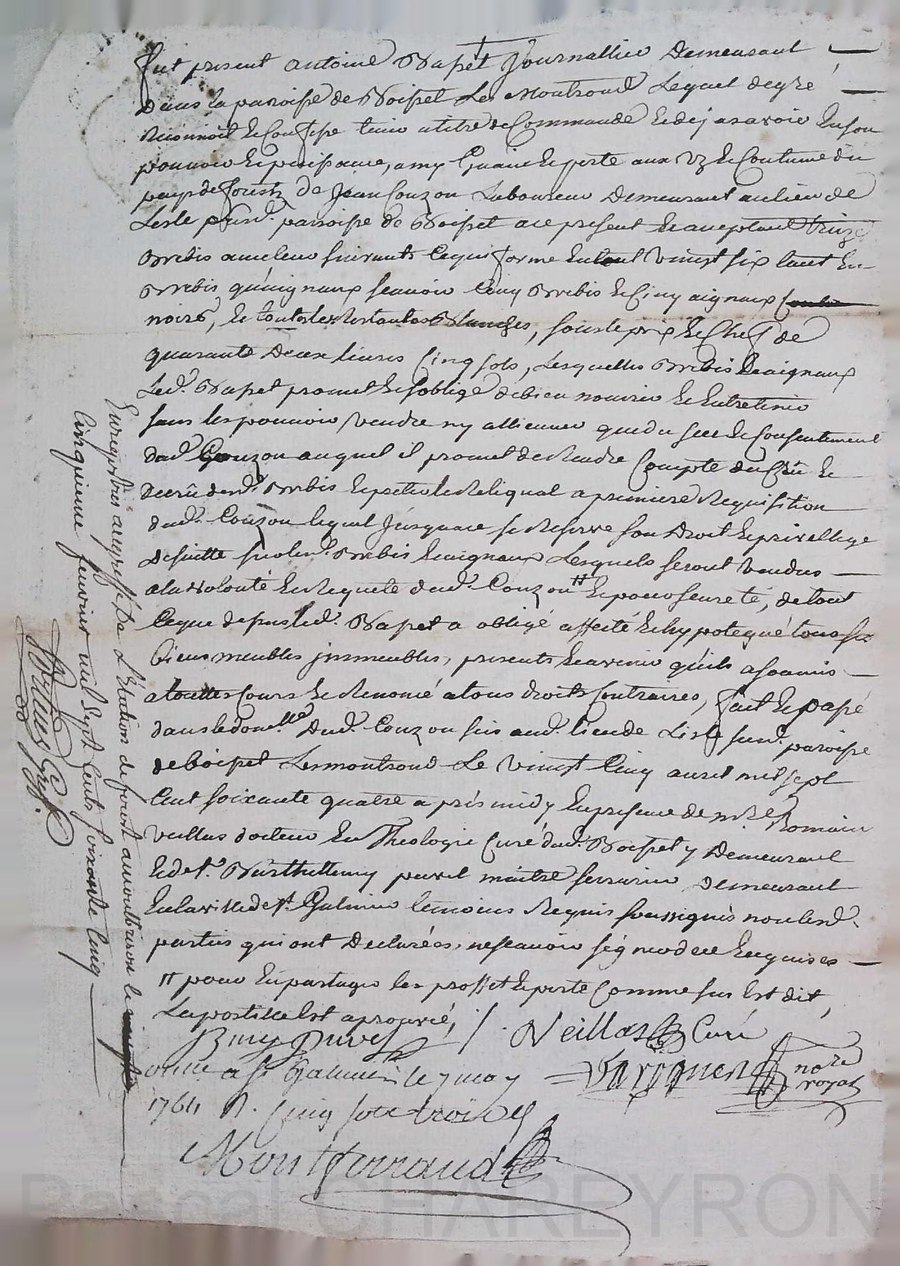 fut present antoine Bapêt Journallier Demeurant
Dans la paroisse de Boisset Les Montrond Lequel de gré
Reconnoit et Confesse tenir a titre de Commande et deja avoir en son
pouvoir et puissance, a my Guain et perte aux uz et Coutume du
pays de forestz de Jean Couzon Laboureur Demeurant au lieu de
Lisle paroisse de Boisset ace present et aceptant treize
Brebis avec leur suivants Ce qui forme en tout vingt six tant en
Brebis qu'aignaux scavoir Cinq Brebis et Cinq aignaux
noirs, et toutes les restantes Blanches, sous le prix et Chef de
quarante Deux livres Cinq sols, Lesquelles Brebis et aignaux
Led. Bapet promet et s'oblige de bien nourrir et Entretenir
sans les pouvoir vendre ny alliener que du sceu et Consentement
dud. Couzon auquel il promet de Rendre Compte du Crû et
Decrû desd. Brebis et payer le Reliqual a premiere Requisition
dud. Couzon lequel Jusqu'ace se Reserve son Droit et privellege
de suitte sur lesd. Brebis et aignaux Lesquels seront vendus
a la volonté et Requete dud. Couzon # et pour seureté, de tout
Ce que dessus led. Bapet a obligé affecté et hypotequé tous ses
biens meubles jmmeubles, presents et avenir qu'ils a soumis
a touttes Cours et Renoncé a tous droits Contraires, fait et passé
dans le domlle Dud. Couzon sis aud. lieu de Lisle paroisse
de boisset Les montrond Le vingt Cinq avril mil sept
Cent soixante quatre a prés midy En presence de mre Romain
veillas docteur En Theologie Curé dud. Boisset y Demeurant
et de sr. Barthellemy maitre serrurier Demeurant
En la ville de st Galmier temoins Requis soussignés non lesd.
parties qui ont Declarées, ne scavoir signer de ce Enquises
# pour En partager les proffit et perte Comme sus Est dit,
La postille Est aprouvé,
Veillas Curé
nore royal
a st Galmier le 7 may
1764 R. Cinq sols trois
Montferrand
Enregistré au greffe de L'Election de forest a montbrison le
Cinquieme fevrier mil sept Cents soixante Cinq